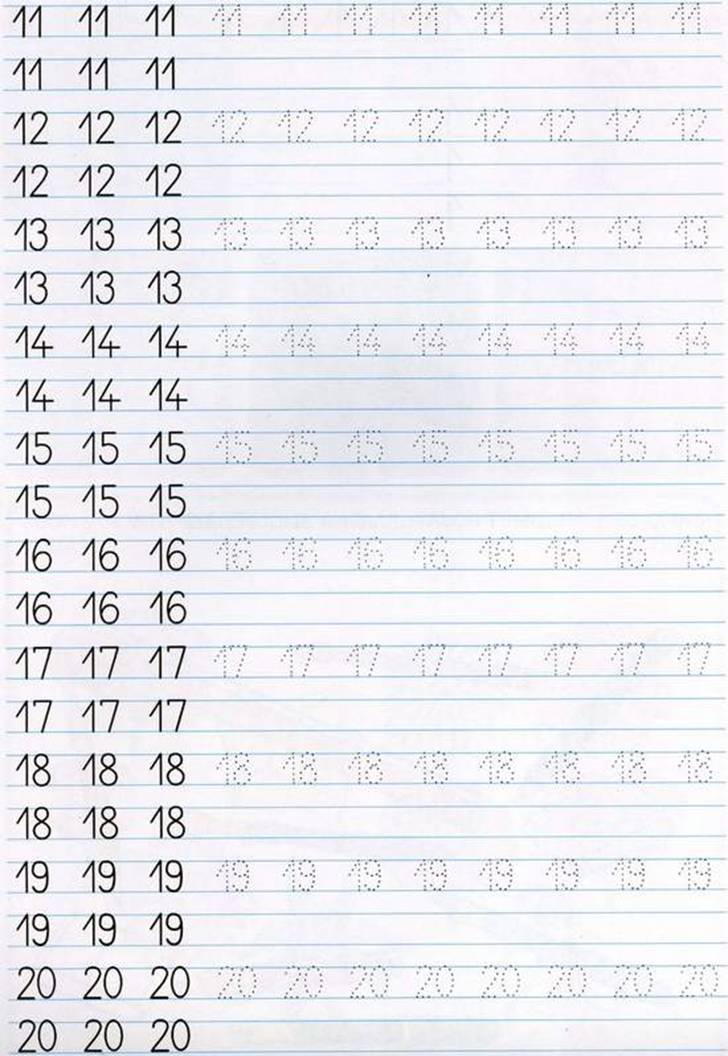 11 11 11 11 11 11 11 11 11 11 11
11 11 11
12 12 12 12 12 12 12 12 12 12 12
12 12 12
13 13 13 13 13 13 13 13 13 13 13
13 13 13
14 14 14 14 14 14 14 14 14 14 14
14 14 14
15 15 15 15 15 15 15 15 15 15 15
15 15 15
16 16 16 16 16 16 16 16 16 16 16
16 16 16
17 17 17 17 17 17 17 17 17 17 17
17 17 17
18 18 18 18 18 18 18 18 18 18 18
18 18 18
19 19 19 19 19 19 19 19 19 19 19
19 19 19
20 20 20 20 20 20 20 20 20 20 20
20 20 20